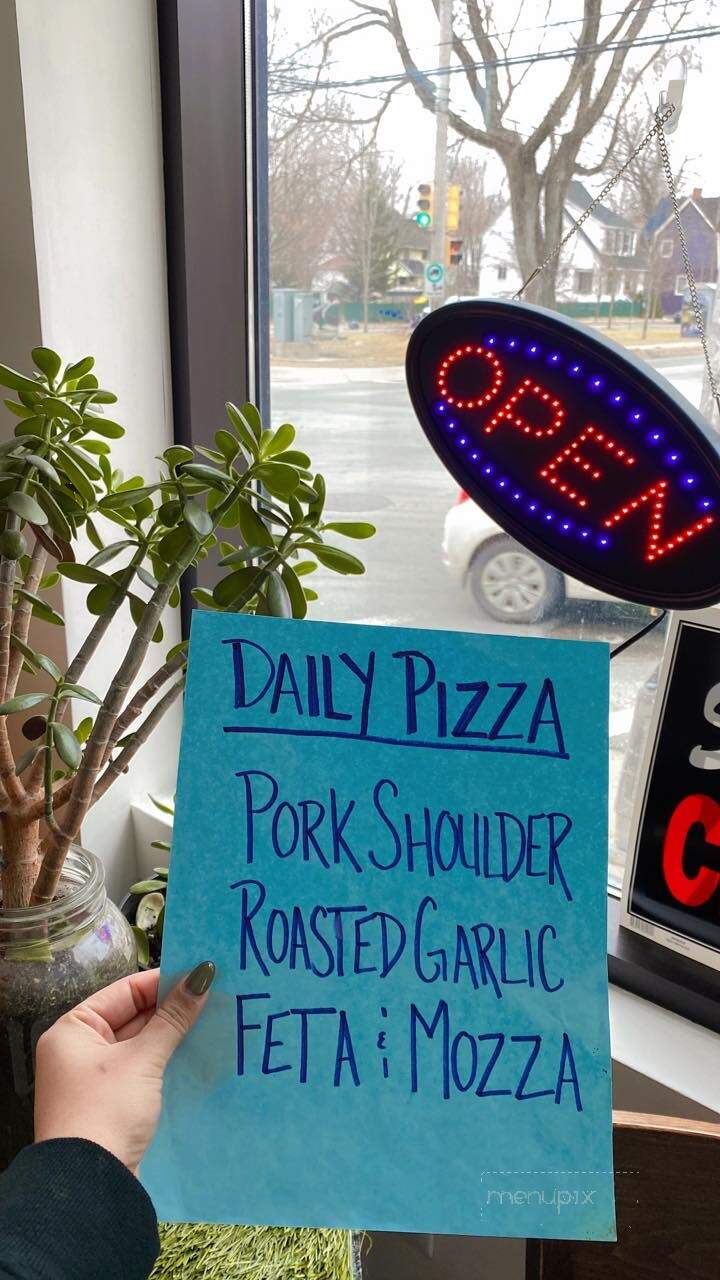 OPEN
DAILY PIZZA
PORK SHOULDER
ROASTED GARLIC
FETA & MOZZA
menupix